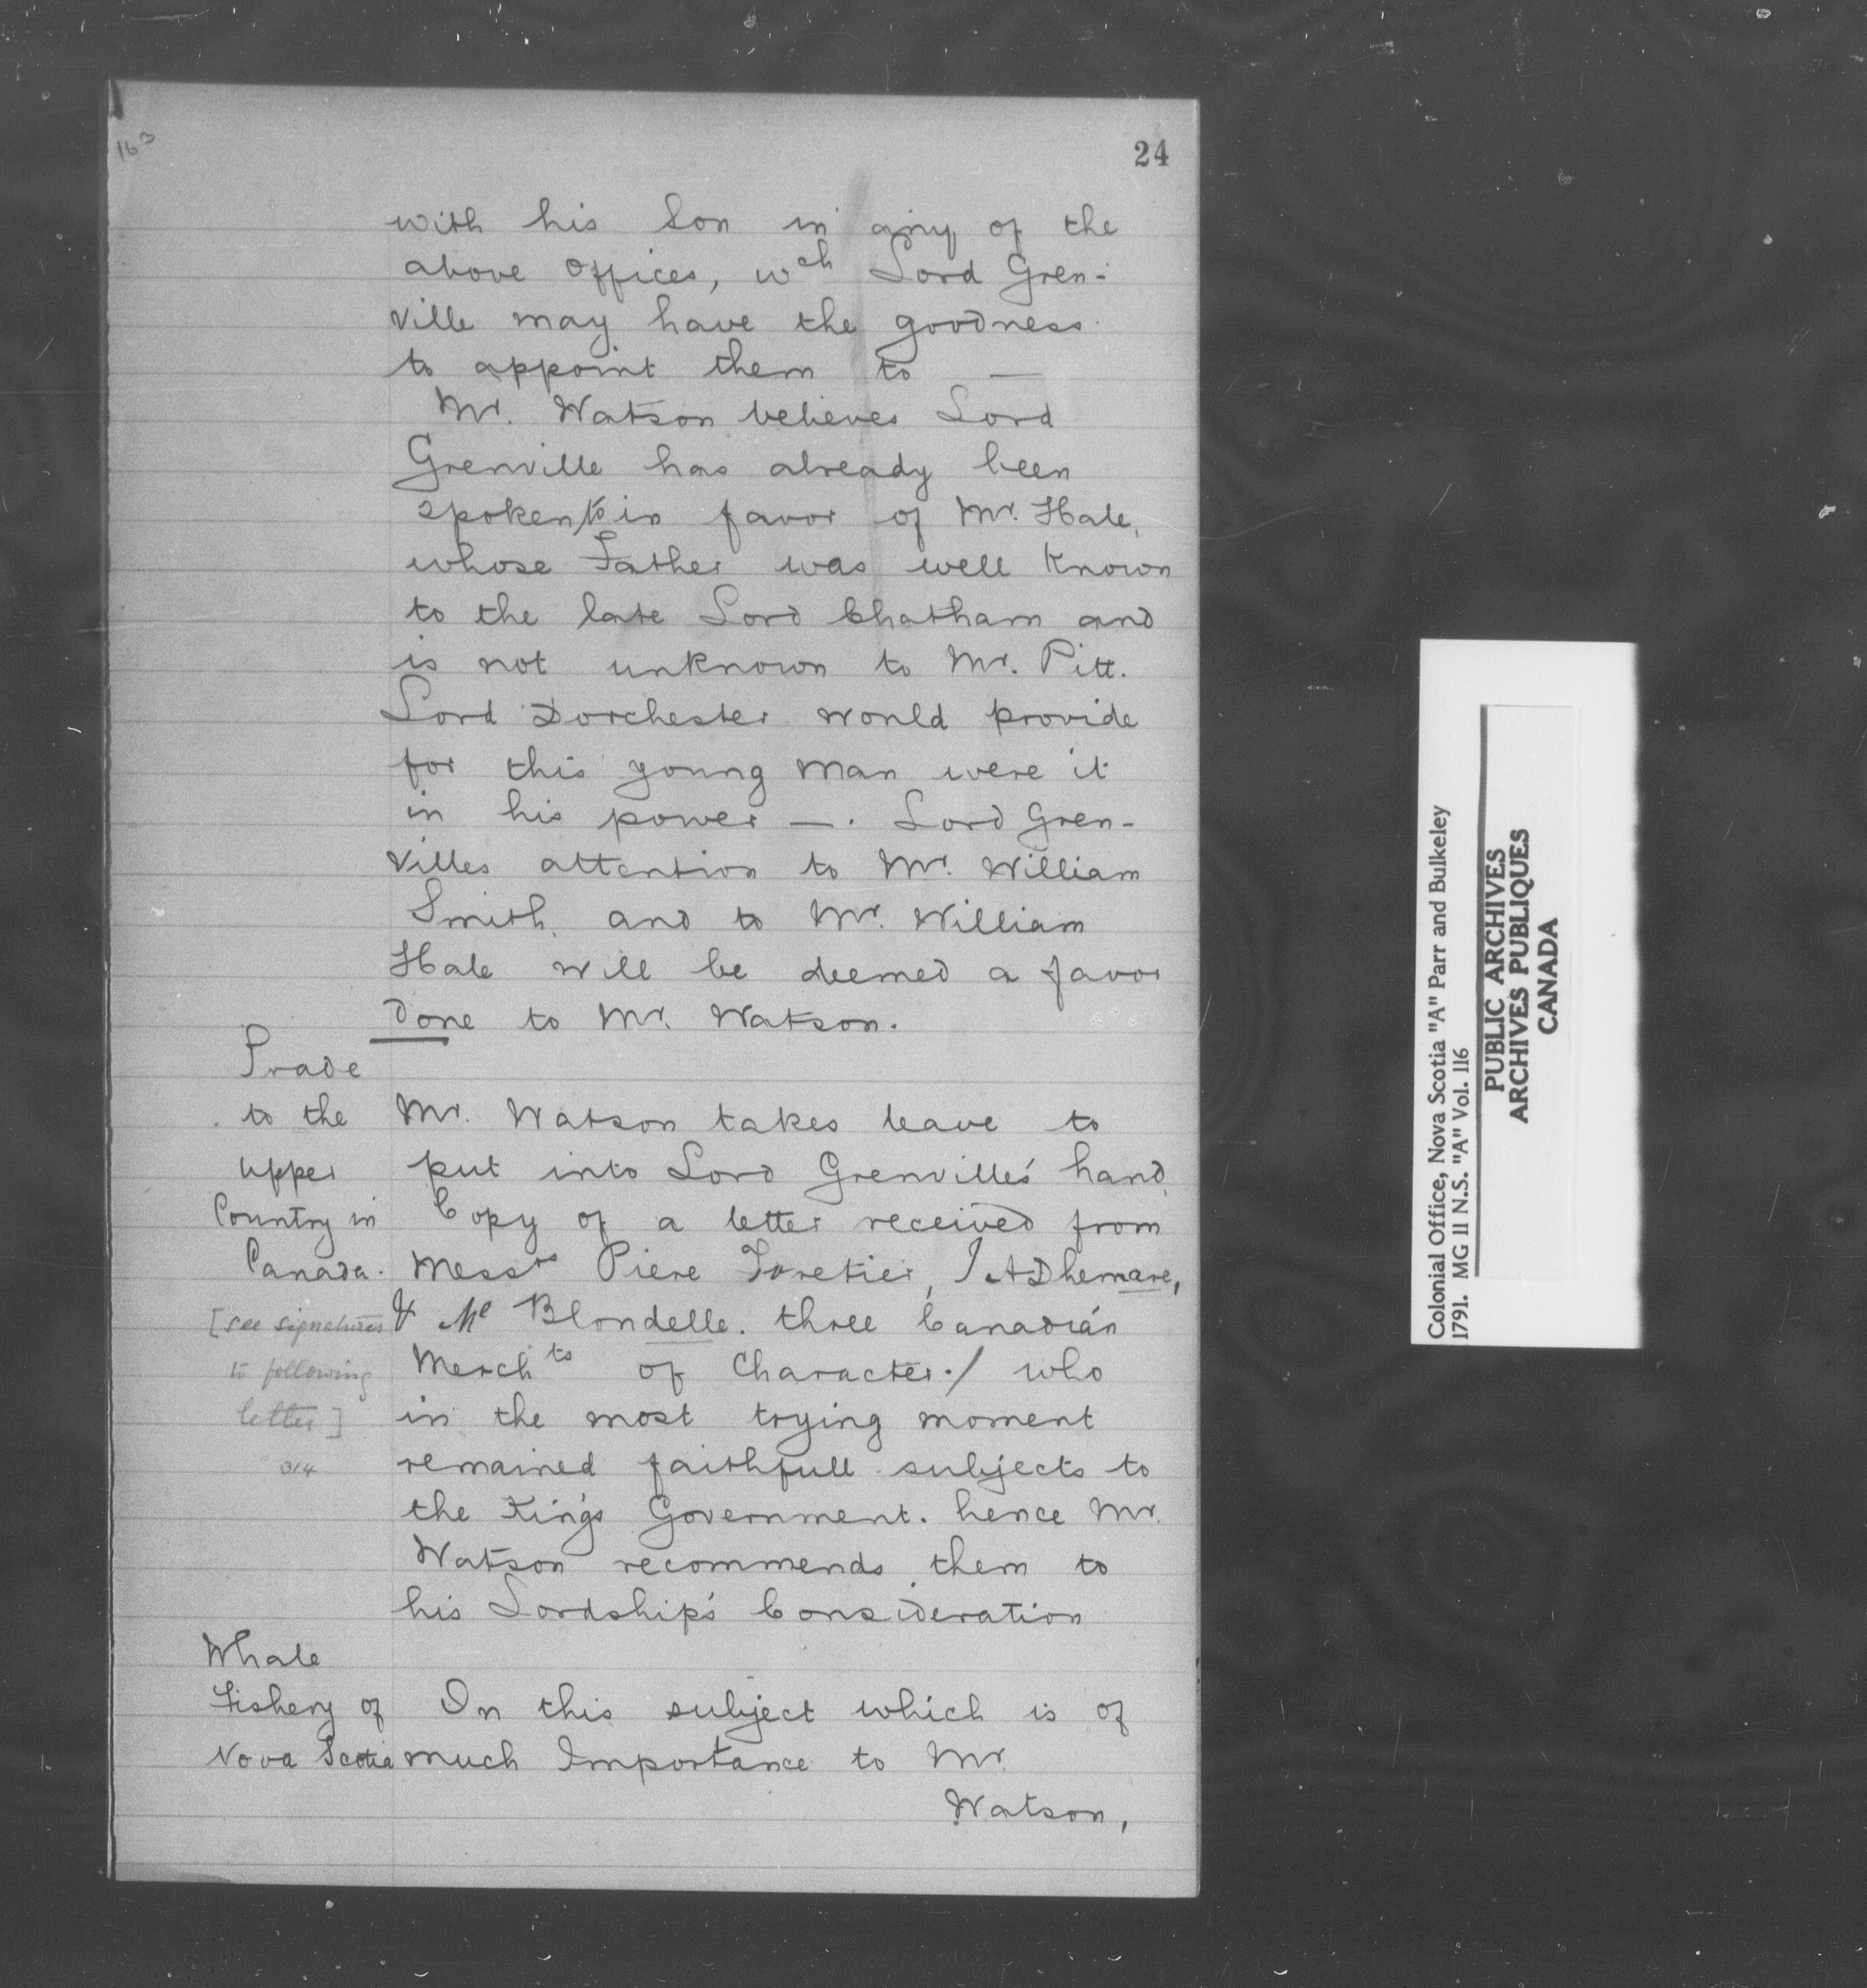 163
24
with his Son in any of the
above Offices, wch Lord Gren-
ville may have the goodness
to appoint them to —
Mr. Watson believes Lord
Grenville has already been
spoken to in favor of Mr. Hale,
whose Father was well known
to the late Lord Chatham and
is not unknown to Mr. Pitt.
Lord Dorchester would provide
for this young man were it
in his power —. Lord Gren-
villes attention to Mr. William
Smith, and to Mr. William
Hale will be deemed a favor
done to Mr. Watson.
Trade
to the
upper
Country in
Canada.
[see signatures
to following
letter]
314
Mr. Watson takes leave to
put into Lord Grenville's hand,
Copy of a letter received from
Messrs Piere Foretier, J ADhemare,
& Me Blondelle. three Canadian
Merchts of Character./ who
in the most trying moment
remained faithfull subjects to
the King's Government. hence Mr.
Watson recommends them to
his Lordship's Consideration
Whale
Fishery of
Nova Scotia
On this subject which is of
much Importance to Mr.
Watson,
Colonial Office, Nova Scotia "A" Parr and Bulkeley
1791. MG 11 N.S. "A" Vol. 116
PUBLIC ARCHIVES
ARCHIVES PUBLIQUES
CANADA